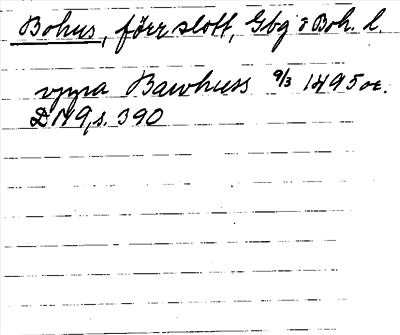 Bohus, förr slott, Gbg o Boh. l.
vppa Bawhuss 9/3 1495 or.
DN 9, s. 390